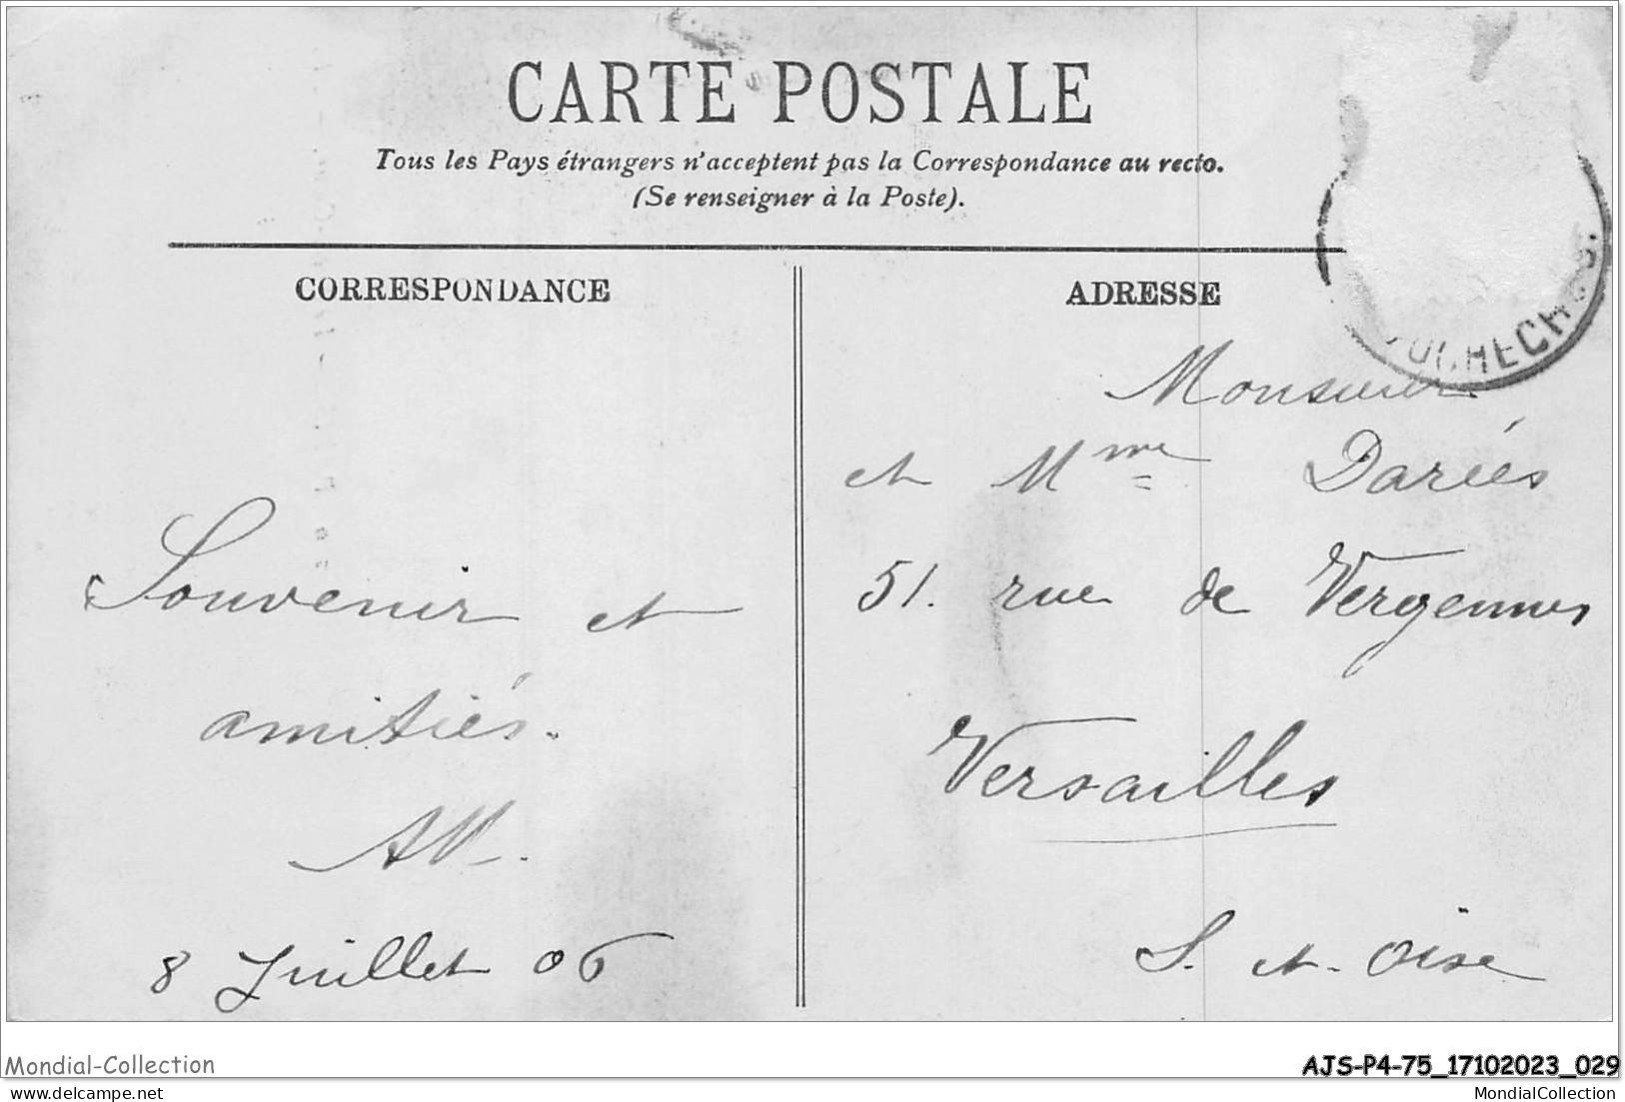 CARTE POSTALE
Tous les Pays étrangers n'acceptent pas la Correspondance au recto.
(Se renseigner à la Poste).
CORRESPONDANCE
Souvenir et
amitiés.
8 Juillet 06
ADRESSE
Monsieur
et Mme Dariés
51. rue de Vergennes
Versailles
S. et. Oise
Mondial-Collection
AJS-P4-75_17102023_029
MondialCollection